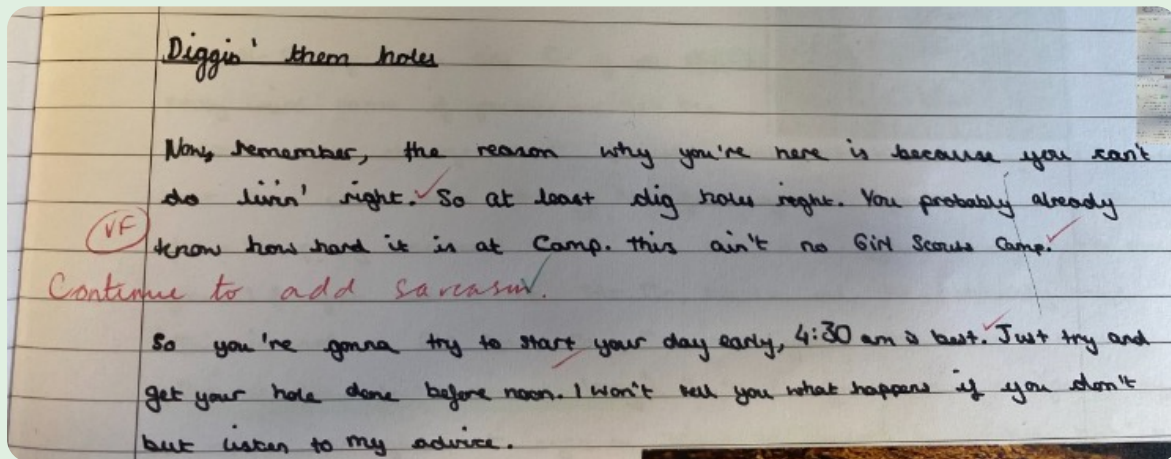 Diggin' them holes
Now, remember, the reason why you're here is because you can't
do livin' right. So at least dig holes right. You probably already
VF
know how hard it is at Camp. this ain't no Girl Scouts Camp.
Continue to add sarcasm.
So you're gonna try to start your day early, 4:30 am is best. Just try and
get your hole done before noon. I won't tell you what happens if you don't
but listen to my advice.